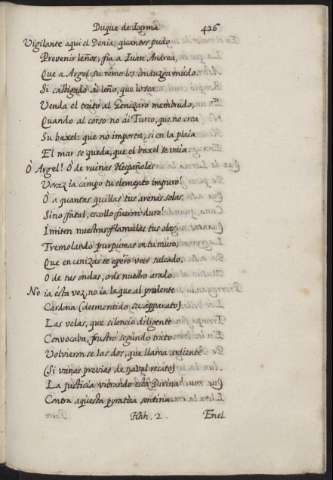 Duque de Lerma 426
Vigilante aqui el Denia, quantos pudo
Prevenir leños, fia a Iuan Andrea,
Que a Argel su remo los conduzga mudo,
Si castigado ai leño, que lo sea.
Venda el trato al Genizaro membrudo,
Quando al corso no ai Turco, que no crea
Su baxel: que no importa, si en la plaia
El mar se queda, que el baxel se vaia.
Ó Argel! Ó de ruinas Hespañolas
Voraz ia campo tu elemento impuro!
Ó a quantas quillas tus arenas solas,
Sino fatal, escollo fueron duro!
Imiten nuestras flammulas tus olas
Tremolando purpureas en tu muro,
Que en cenizas te espero veer sulcado,
O de tus ondas, o de nuestro arado.
No ia esta vez, no ia la que al prudente
Cardona (desmentido su apparato)
Las velas, que silencio diligente
Convocaba, frustrò segundo trato:
Volvieron se las dos, que llama ardiente
(Si vanas previas de naval recato)
La justicia vibrando està divina
Contra aquesta pyratha sentina
Hhh. 2. Enel